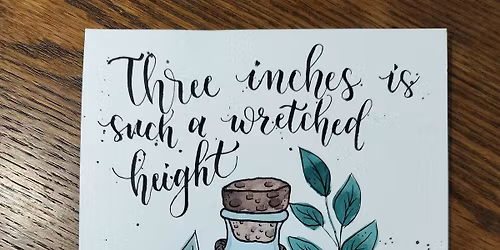 Three inches is
such a wretched
height